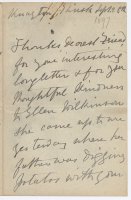 Sept. 9th
1897
Thanks dearest Friend
for your interesting
long letter & for your
thoughtful kindness
to Ellen Wilkinson
she came up to me
yesterday where her
father was digging
potatos with your